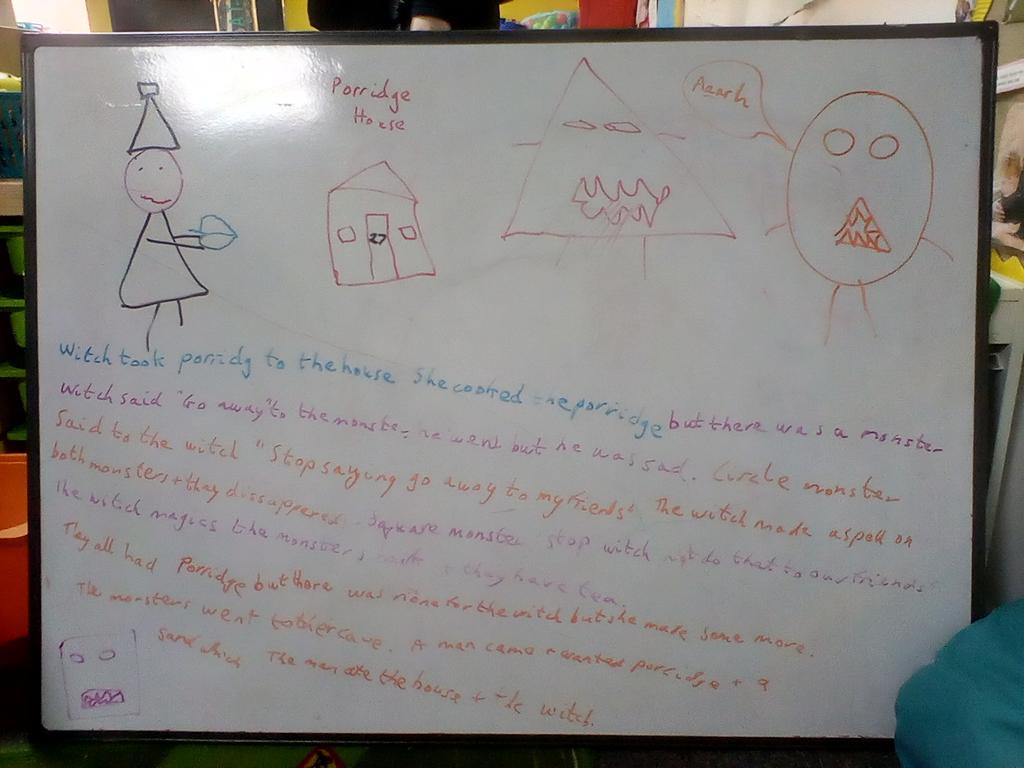 Porridge
House
Aaarh
Witch took porridg to the house She cooked the porridge but there was a monster
Witch said "Go away" to the monster he went but he was sad. Circle monster
Said to the witch "Stop saying go away to my friends" The witch made a spell on
both monsters + they dissappeared. Square monster stop witch not do that to our friends"
The witch magics the monsters + they have tea.
They all had Porridge but there was none for the witch but she made some more.
The monsters went to their cave. A man came + wanted porridge + a
Sandwhich The man ate the house + the witch.